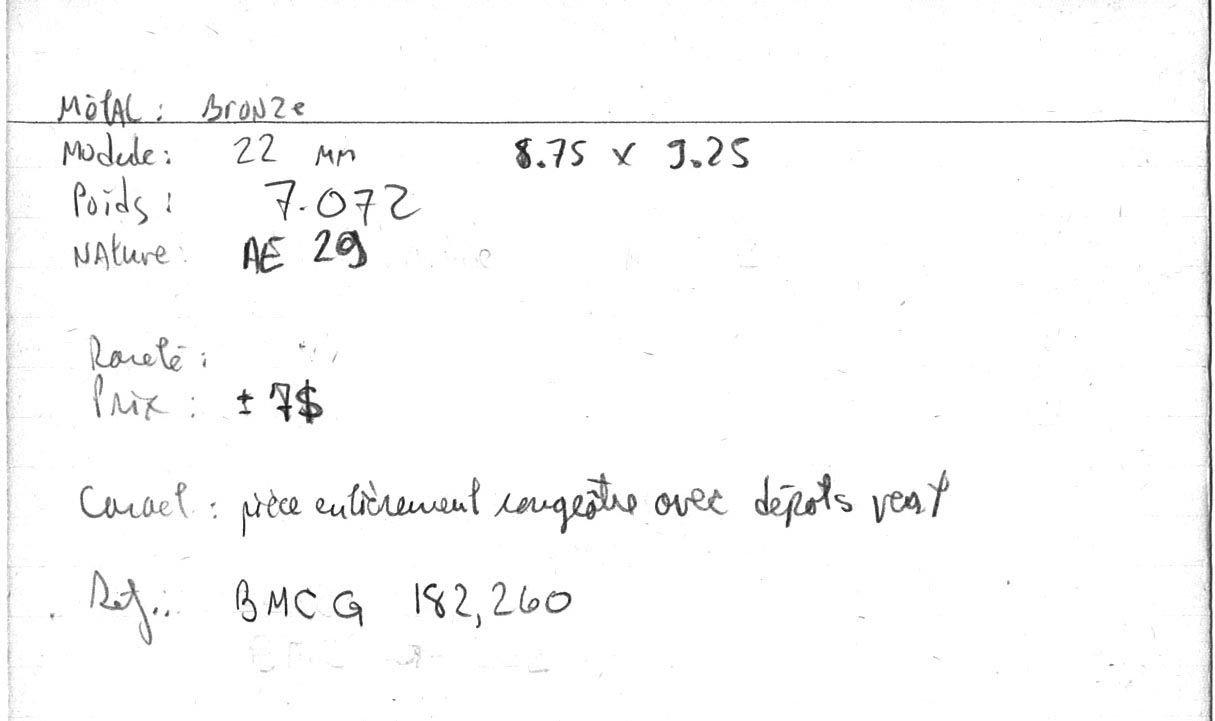 Métal : Bronze
Module : 22 mm 8.75 x 9.25
Poids : 7.072
Nature : AE 29
Rareté :
Prix : ± 7$
Caract : pièce entièrement rougeâtre avec dépôts vert
Ref.: BMC G 182,260